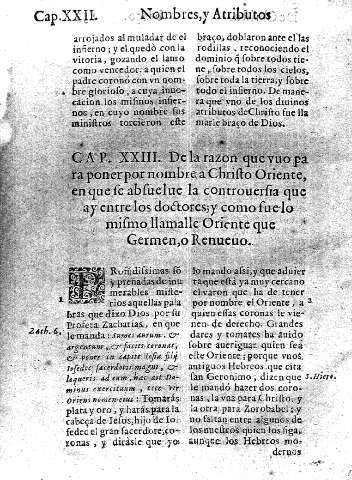 Cap.XXII. Nombres,y Atributos
arrojados al muladar de el
infierno; y el quedò con la
vitoria, gozando el lauro
como vencedor. a quien el
padre coronò con vn nom-
bre glorioso, a cuya inuo-
cacion los mismos infier-
nos, en cuyo nombre sus
ministros torcieron este
braço, doblaron ante el las
rodillas, reconociendo el
dominio q̃ sobre todos tie-
ne, sobre todos los cielos,
sobre toda la tierra, y sobre
todo el infierno. De mane-
ra que vno de los diuinos
atributos de Christo fue lla
marle braço de Dios.
CAP. XXIII. De la razon que vuo pa
ra poner por nombre a Christo Oriente,
en que se absuelue la controuersia que
ay entre los doctores; y como fue lo
mismo llamalle Oriente que
Germen, o Renueuo.
PRofũdissimas só
y preñadas de in-
numerables miste-
rios aquellas pala
bras que dixo Dios por su
Profeta Zacharias, en que
le manda: Sumes aurum, &
argentum, & facies coronas,
& pones in capite Iesu filij
Iosedec sacerdotis magni, &
loqueris ad eum, hæc ait Do-
minus exercituum, ecce vir
Oriens nomen eius: Tomaràs
plata y oro, y haràs para la
cabeça de Iesus, hijo de Io-
sedec el gran sacerdote, co-
ronas, y diràsle que yo
1
Zach. 6.
lo mando assi, y que aduier
ta que està ya muy cercano
el varon que ha de tener
por nombre el Oriente, a
quien essas coronas le vie-
nen de derecho. Grandes
dares y tomares ha auido
sobre aueriguar quien sea
este Oriente; porque vnos
antiguos Hebreos, que ci-
ta san Geronimo, dizen que
le mandò hazer dos coro-
nas, la vna para Christo, y
la otra para Zorobabel; y
no faltan entre algunos de
los nuestros quien los siga,
aunque los Hebreos mo-
dernos
2
S. Hiero.